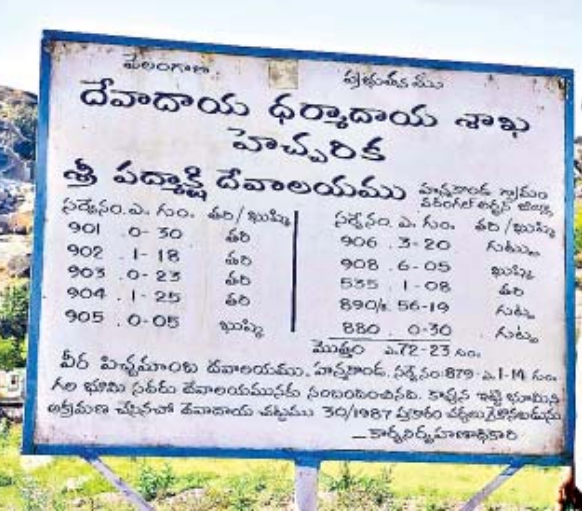 తెలంగాణ ప్రభుత్వము
దేవాదాయ ధర్మాదాయ శాఖ
హెచ్చరిక
శ్రీ పద్మాక్షి దేవాలయము హన్మకొండ గ్రామం
వరంగల్ అర్బన్ జిల్లా
సర్వేనం. ఎ. గుం. తరి/ఖుష్కి
901 0-30 తరి
902 . 1-18 తరి
903 . 0-23 తరి
904 . 1-25 తరి
905 . 0-05 ఖుష్కి
సర్వేనం. ఎ. గుం. తరి/ఖుష్కి
906 . 3-20 గుట్ట
908 . 6-05 ఖుష్కి
535 . 1-08 తరి
890/ 56-19 గుట్ట
880 . 0-30 గుట్ట
మొత్తం ఎ.72-23 గుం.
వీర పిచ్చమాంబ దేవాలయము. హన్మకొండ. సర్వేనం:879-ఎ.1-14 గుం.
గల భూమి సదరు దేవాలయమునకు సంబంధించినది. కావున ఇట్టి భూమిని
ఆక్రమణ చేసినచో దేవాదాయ చట్టము 30/1987 ప్రకారం చర్యలు తీసుకొనబడును
_కార్యనిర్వహణాధికారి